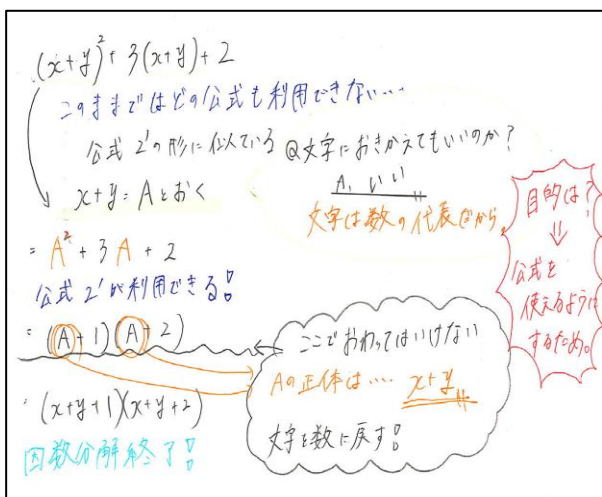 (x+y)²+3(x+y)+2
このままではどの公式も利用できない…
公式2'の形に似ている Q文字におきかえてもいいのか?
A, いい
x+y=Aとおく
文字は数の代表だから。
= A²+3A+2
公式2'が利用できる!
= (A+1)(A+2)
ここでおわってはいけない
Aの正体は…. x+y
文字を数に戻す!
= (x+y+1)(x+y+2)
因数分解終了!
目的は?
⇓
公式を
使えるように
するため。